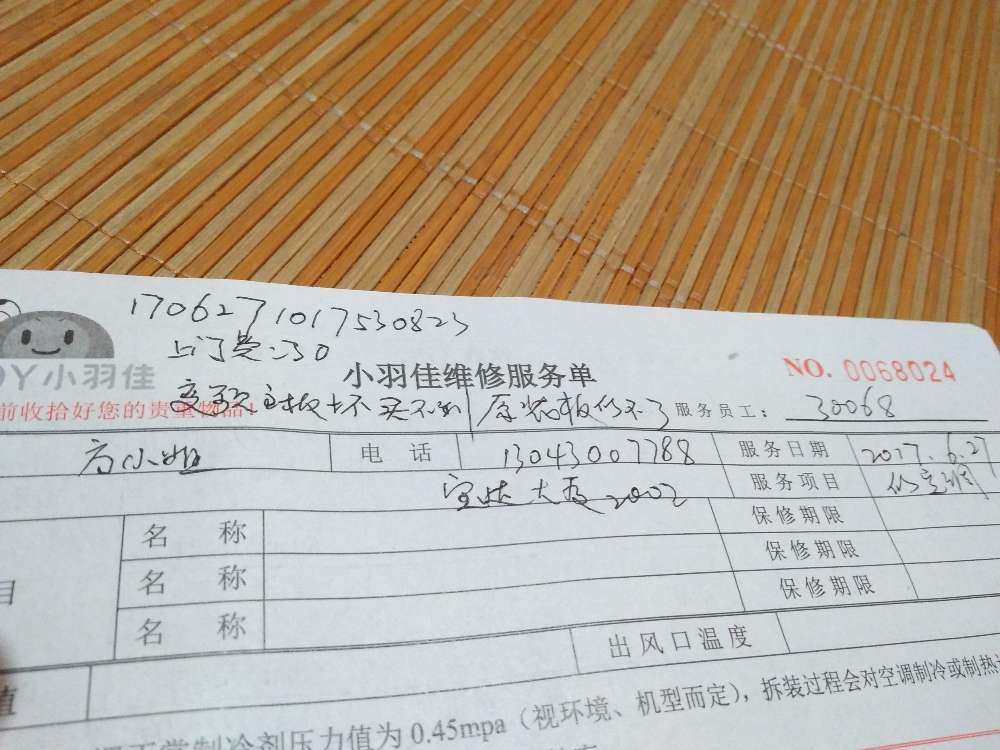 1706271017530823
上门费:30
小羽佳
小羽佳维修服务单
NO. 0068024
前收拾好您的贵重物品!
主板坏 买不到 原装板修不了
服务员工: 30068
方小姐
电话 13043007788
服务日期 2017.6.27
大厦2002
服务项目 修空调
保修期限
名称
保修期限
名称
保修期限
名称
出风口温度
值
正常制冷剂压力值为 0.45mpa(视环境、机型而定),拆装过程会对空调制冷或制热